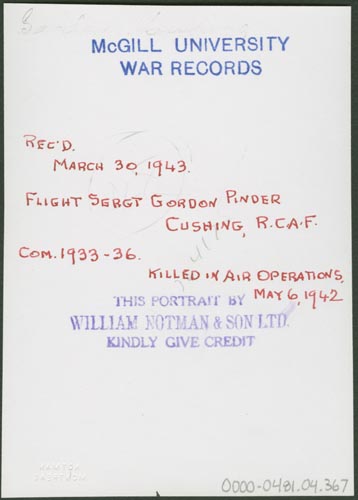 McGILL UNIVERSITY
WAR RECORDS
REC'D.
MARCH 30, 1943.
FLIGHT SERGT GORDON PINDER
CUSHING, R.C.A.F.
COM. 1933-36.
KILLED IN AIR OPERATIONS,
MAY 6, 1942
THIS PORTRAIT BY
WILLIAM NOTMAN & SON LTD.
KINDLY GIVE CREDIT
0000-0481.04.367